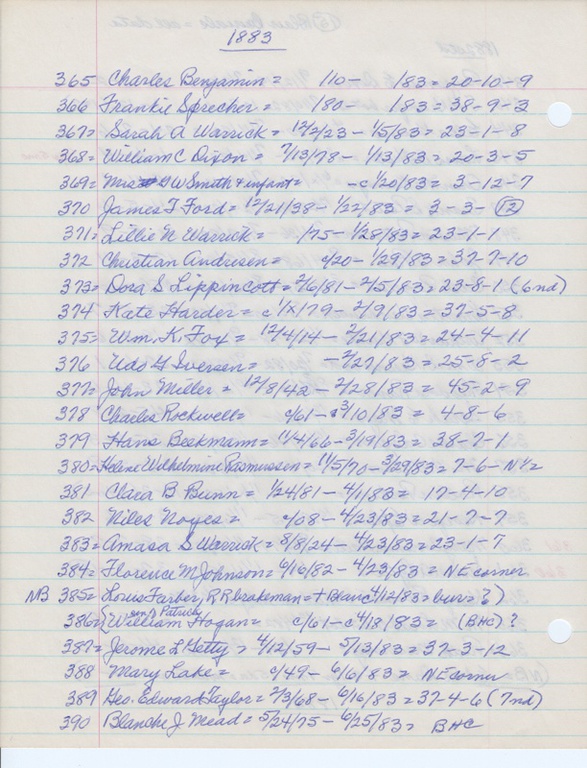 1883
365 Charles Benjamin = 110 - 183 = 20-10-9
366 Frankie Sprecher = 180 - 183 = 38-9-3
367 = Sarah A Warrick = 12/2/23 - 1/5/83 = 23-1-8
368 = William C Dixon = 7/13/78 - 1/13/83 = 20-3-5
369 = Mrs W Smith + infant = - c 1/20/83 = 3-12-7
370 James T Ford = 12/21/38 - 1/22/83 = 3-3-12
371 = Lillie N Warrick = /75 - 1/28/83 = 23-1-1
372 Christian Andresen = c/20 - 1/29/83 = 37-7-10
373 = Dora S Lippincott = 2/6/81 - 2/5/83 = 23-8-1 (6 nd)
374 Kate Harder = c 1/X/79 - 2/9/83 = 37-5-8
375 = Wm. K. Fox = 12/4/14 - 2/21/83 = 24-4-11
376 Udo G Iversen = - 2/27/83 = 25-8-2
377 = John Miller = 12/8/42 - 2/28/83 = 45-2-9
378 Charles Rockwell = c/61 - 3/10/83 = 4-8-6
379 Hans Beskmann = 11/4/66 - 3/19/83 = 38-7-1
380 = Helene Wilhelmine Rasmussen = 11/5/70 - 3/29/83 = 7-6- N 1/2
381 Clara B Bunn = 1/24/81 - 4/1/83 = 17-4-10
382 Niles Noyes = c/08 - 4/23/83 = 21-7-7
383 = Amasa S Warrick = 8/8/24 - 4/23/83 = 23-1-7
384 = Florence M Johnson = 6/16/82 - 4/23/83 = NE corner
NB 385 = Louis Farber, RR brakeman = + 4/12/83 = bur = ?)
and Patrick
386 { William Hogan = c/61 - c 4/18/83 = (BHC) ?
387 = Jerome L Getty = 4/12/59 - 5/13/83 = 37-3-12
388 Mary Lake = c/49 - 6/6/83 = NE corner
389 Geo. Edward Taylor = 2/3/68 - 6/16/83 = 37-4-6 (7 nd)
390 Blanche J. Mead = 5/24/75 - 6/25/83 = BHC